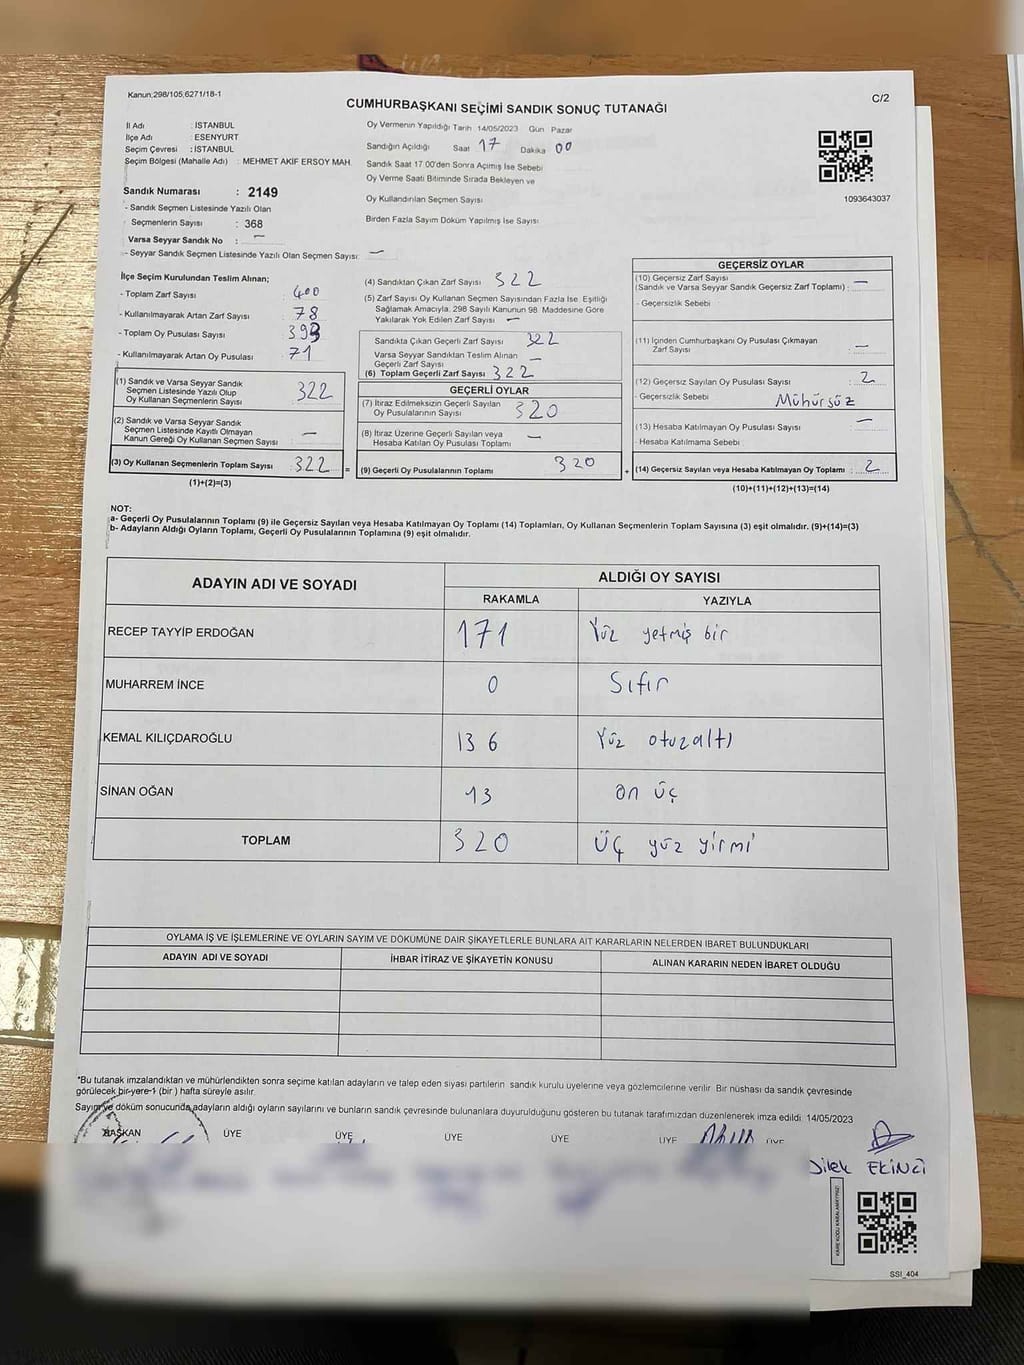 Kanun;298/105,6271/18-1
CUMHURBAŞKANI SEÇİMİ SANDIK SONUÇ TUTANAĞI
C/2
İl Adı : İSTANBUL
İlçe Adı : ESENYURT
Seçim Çevresi : İSTANBUL
Seçim Bölgesi (Mahalle Adı) : MEHMET AKİF ERSOY MAH.
Sandık Numarası : 2149
- Sandık Seçmen Listesinde Yazılı Olan
Seçmenlerin Sayısı : 368
Varsa Seyyar Sandık No : –
- Seyyar Sandık Seçmen Listesinde Yazılı Olan Seçmen Sayısı: –
Oy Vermenin Yapıldığı Tarih 14/05/2023 Gün Pazar
Sandığın Açıldığı Saat 17 Dakika 00
Sandık Saat 17.00'den Sonra Açılmış İse Sebebi
Oy Verme Saati Bitiminde Sırada Bekleyen ve
Oy Kullandırılan Seçmen Sayısı
Birden Fazla Sayım Döküm Yapılmış İse Sayısı
1093643037
İlçe Seçim Kurulundan Teslim Alınan;
- Toplam Zarf Sayısı : 400
- Kullanılmayarak Artan Zarf Sayısı : 78
- Toplam Oy Pusulası Sayısı : 393
- Kullanılmayarak Artan Oy Pusulası : 71
(1) Sandık ve Varsa Seyyar Sandık
Seçmen Listesinde Yazılı Olup
Oy Kullanan Seçmenlerin Sayısı : 322
(2) Sandık ve Varsa Seyyar Sandık
Seçmen Listesinde Kayıtlı Olmayan
Kanun Gereği Oy Kullanan Seçmen Sayısı : –
(3) Oy Kullanan Seçmenlerin Toplam Sayısı : 322 =
(1)+(2)=(3)
(4) Sandıktan Çıkan Zarf Sayısı : 322
(5) Zarf Sayısı Oy Kullanan Seçmen Sayısından Fazla İse, Eşitliği
Sağlamak Amacıyla, 298 Sayılı Kanunun 98. Maddesine Göre
Yakılarak Yok Edilen Zarf Sayısı : –
Sandıkta Çıkan Geçerli Zarf Sayısı : 322
Varsa Seyyar Sandıktan Teslim Alınan
Geçerli Zarf Sayısı : –
(6) Toplam Geçerli Zarf Sayısı : 322
GEÇERLİ OYLAR
(7) İtiraz Edilmeksizin Geçerli Sayılan
Oy Pusulalarının Sayısı : 320
(8) İtiraz Üzerine Geçerli Sayılan veya
Hesaba Katılan Oy Pusulası Toplamı : –
(9) Geçerli Oy Pusulalarının Toplamı 320 +
GEÇERSİZ OYLAR
(10) Geçersiz Zarf Sayısı
(Sandık ve Varsa Seyyar Sandık Geçersiz Zarf Toplamı) : –
- Geçersizlik Sebebi :
(11) İçinden Cumhurbaşkanı Oy Pusulası Çıkmayan
Zarf Sayısı : –
(12) Geçersiz Sayılan Oy Pusulası Sayısı : 2
- Geçersizlik Sebebi : Mühürsüz
(13) Hesaba Katılmayan Oy Pusulası Sayısı : –
- Hesaba Katılmama Sebebi :
(14) Geçersiz Sayılan veya Hesaba Katılmayan Oy Toplamı : 2
(10)+(11)+(12)+(13)=(14)
NOT:
a- Geçerli Oy Pusulalarının Toplamı (9) ile Geçersiz Sayılan veya Hesaba Katılmayan Oy Toplamı (14) Toplamları, Oy Kullanan Seçmenlerin Toplam Sayısına (3) eşit olmalıdır. (9)+(14)=(3)
b- Adayların Aldığı Oyların Toplamı, Geçerli Oy Pusulalarının Toplamına (9) eşit olmalıdır.
ADAYIN ADI VE SOYADI ALDIĞI OY SAYISI
RAKAMLA YAZIYLA
RECEP TAYYİP ERDOĞAN 171 Yüz yetmiş bir
MUHARREM İNCE 0 Sıfır
KEMAL KILIÇDAROĞLU 136 Yüz otuzaltı
SİNAN OĞAN 13 on üç
TOPLAM 320 Üç yüz yirmi
OYLAMA İŞ VE İŞLEMLERİNE VE OYLARIN SAYIM VE DÖKÜMÜNE DAİR ŞİKAYETLERLE BUNLARA AİT KARARLARIN NELERDEN İBARET BULUNDUKLARI
ADAYIN ADI VE SOYADI İHBAR İTİRAZ VE ŞİKAYETİN KONUSU ALINAN KARARIN NEDEN İBARET OLDUĞU
*Bu tutanak imzalandıktan ve mühürlendikten sonra seçime katılan adayların ve talep eden siyasi partilerin sandık kurulu üyelerine veya gözlemcilerine verilir. Bir nüshası da sandık çevresinde
görülecek bir yere 1 (bir) hafta süreyle asılır.
Sayım ve döküm sonucunda adayların aldığı oyların sayılarını ve bunların sandık çevresinde bulunanlara duyurulduğunu gösteren bu tutanak tarafımızdan düzenlenerek imza edildi. 14/05/2023
BAŞKAN ÜYE ÜYE ÜYE ÜYE ÜYE ÜYE
Dilek EKİNCİ
SSI_404